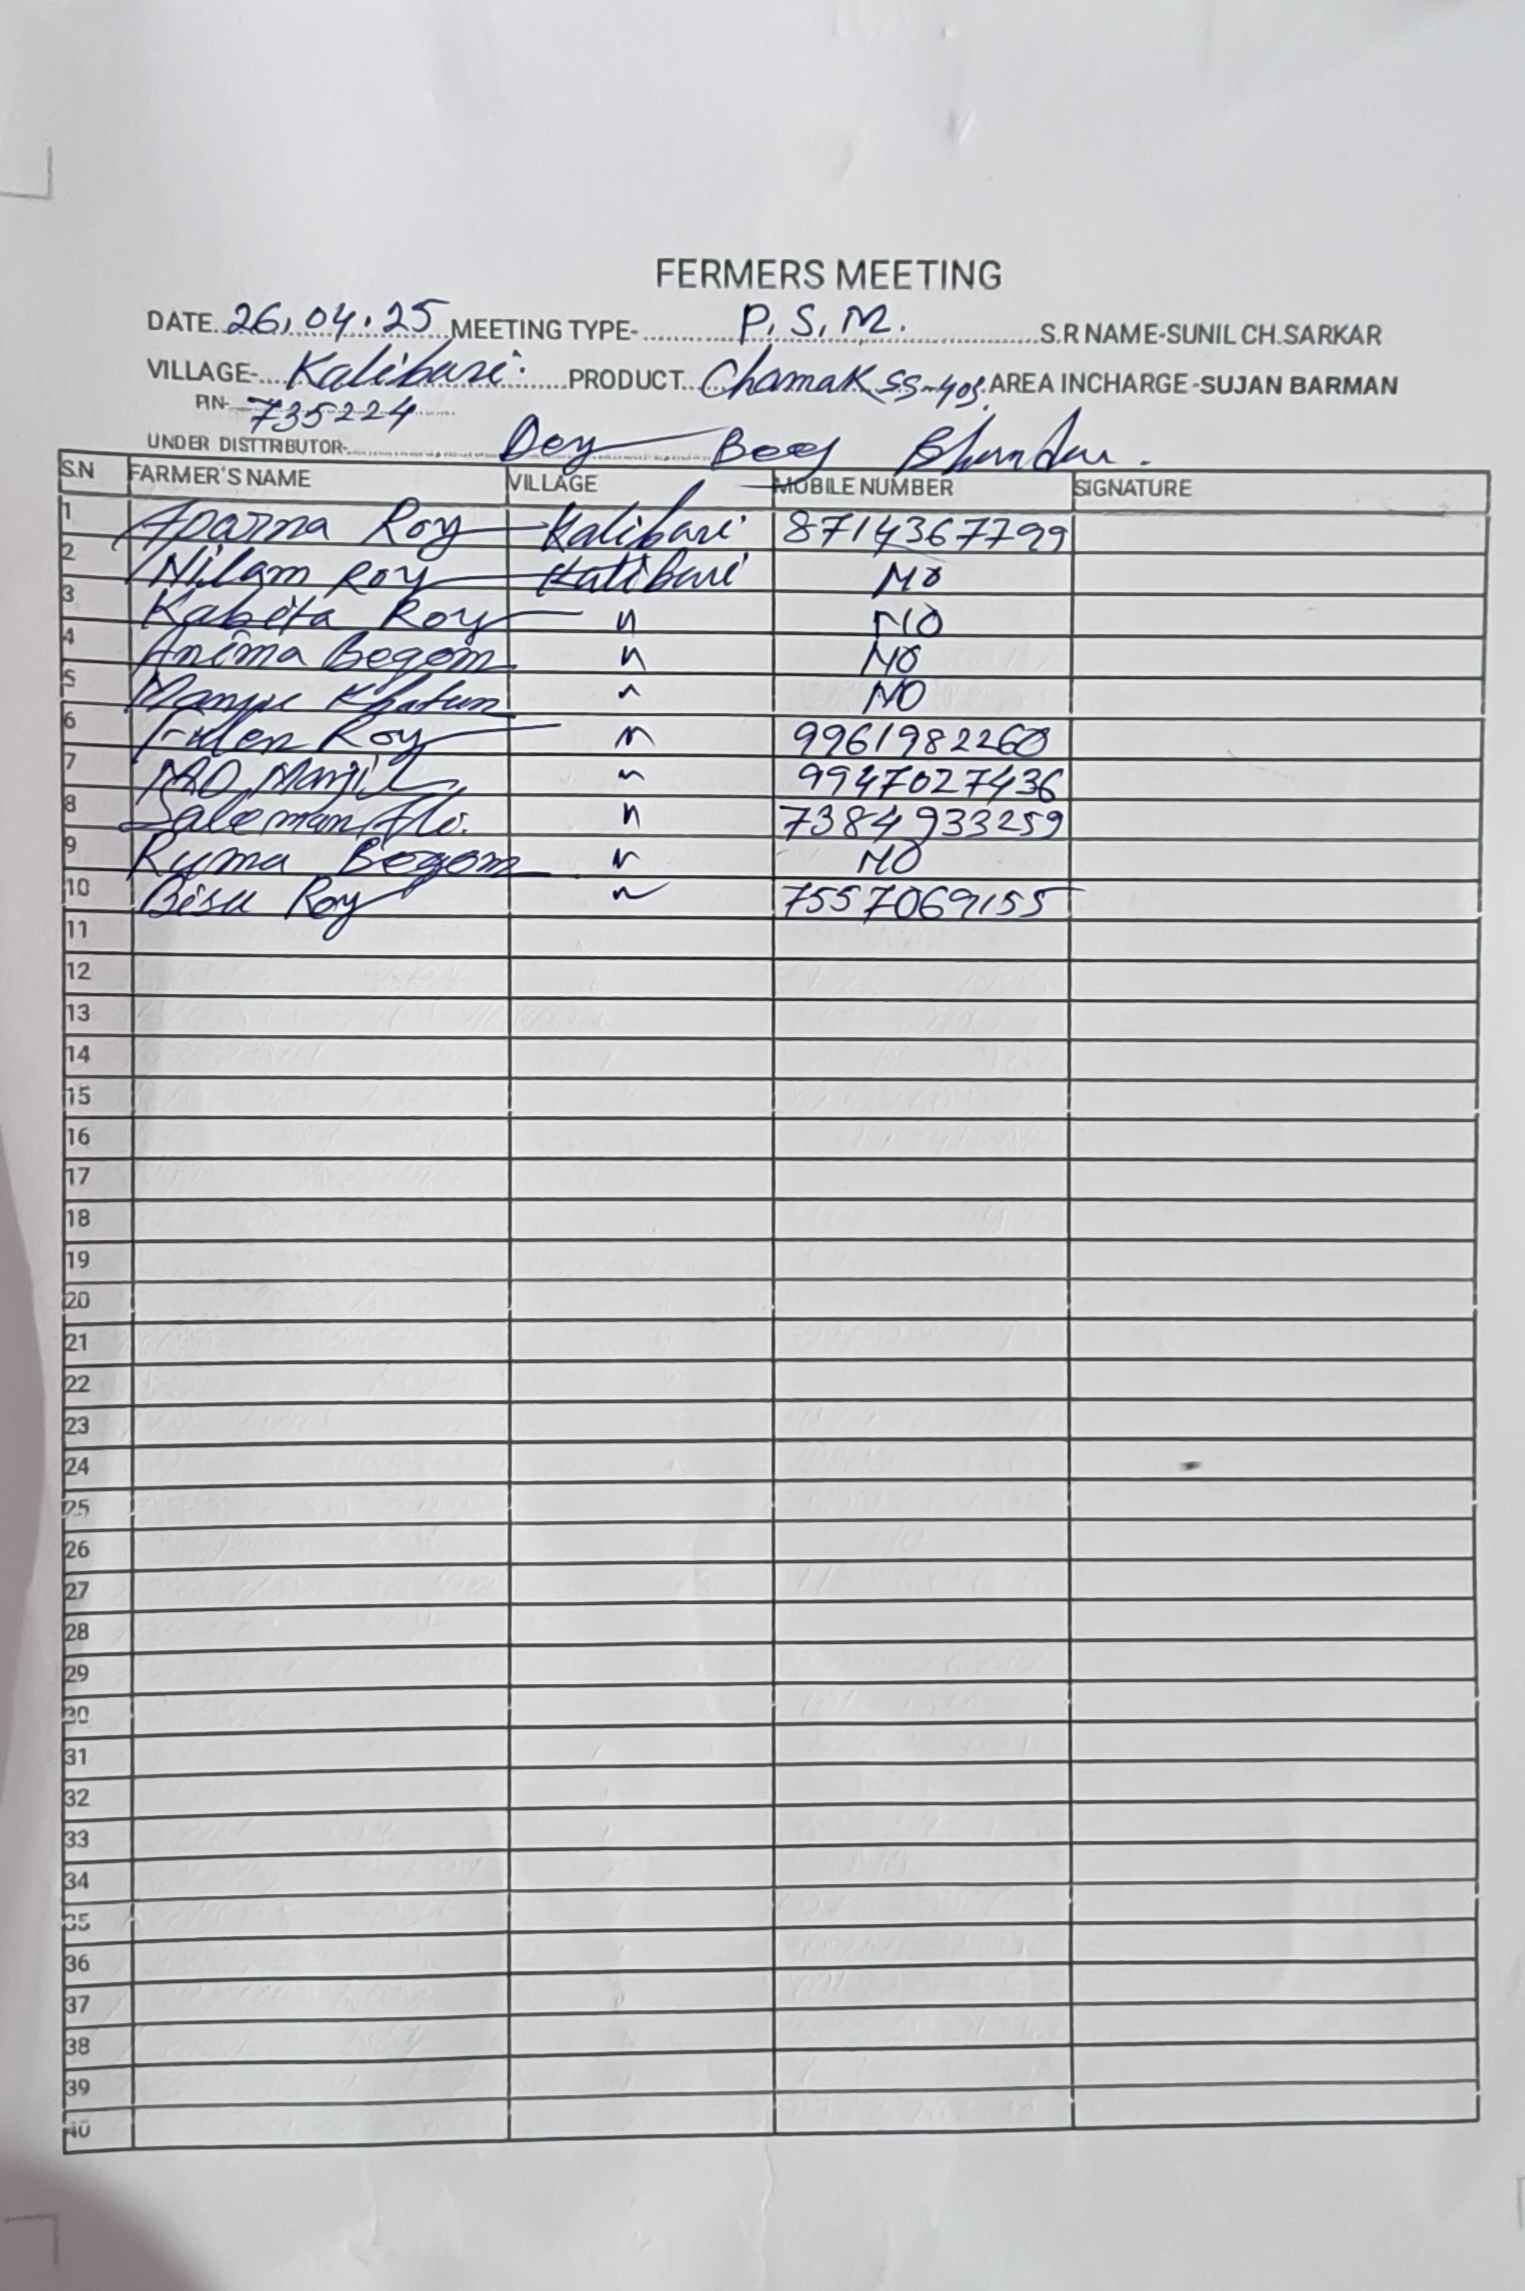 FERMERS MEETING
DATE 26.04.25 MEETING TYPE- P.S.M. S.R NAME-SUNIL CH.SARKAR
VILLAGE- Kalibari PRODUCT Chamak SS-405 AREA INCHARGE-SUJAN BARMAN
PIN- 735224
UNDER DISTTRIBUTOR- Dey Beej Bhandar.
S.N FARMER'S NAME VILLAGE MOBILE NUMBER SIGNATURE
1 Aparna Roy Kalibari 8714367799
2 Nilam Roy Kalibari NO
3 Kabita Roy " NO
4 Anima Begom " NO
5 Manju Khatun " NO
6 Roy " 9961982260
7 MD Manjil " 9947027436
8 Saleman Ali. " 7384933259
9 Ruma Begom " NO
10 Bisu Roy " 7557069155
11
12
13
14
15
16
17
18
19
20
21
22
23
24
25
26
27
28
29
30
31
32
33
34
35
36
37
38
39
40